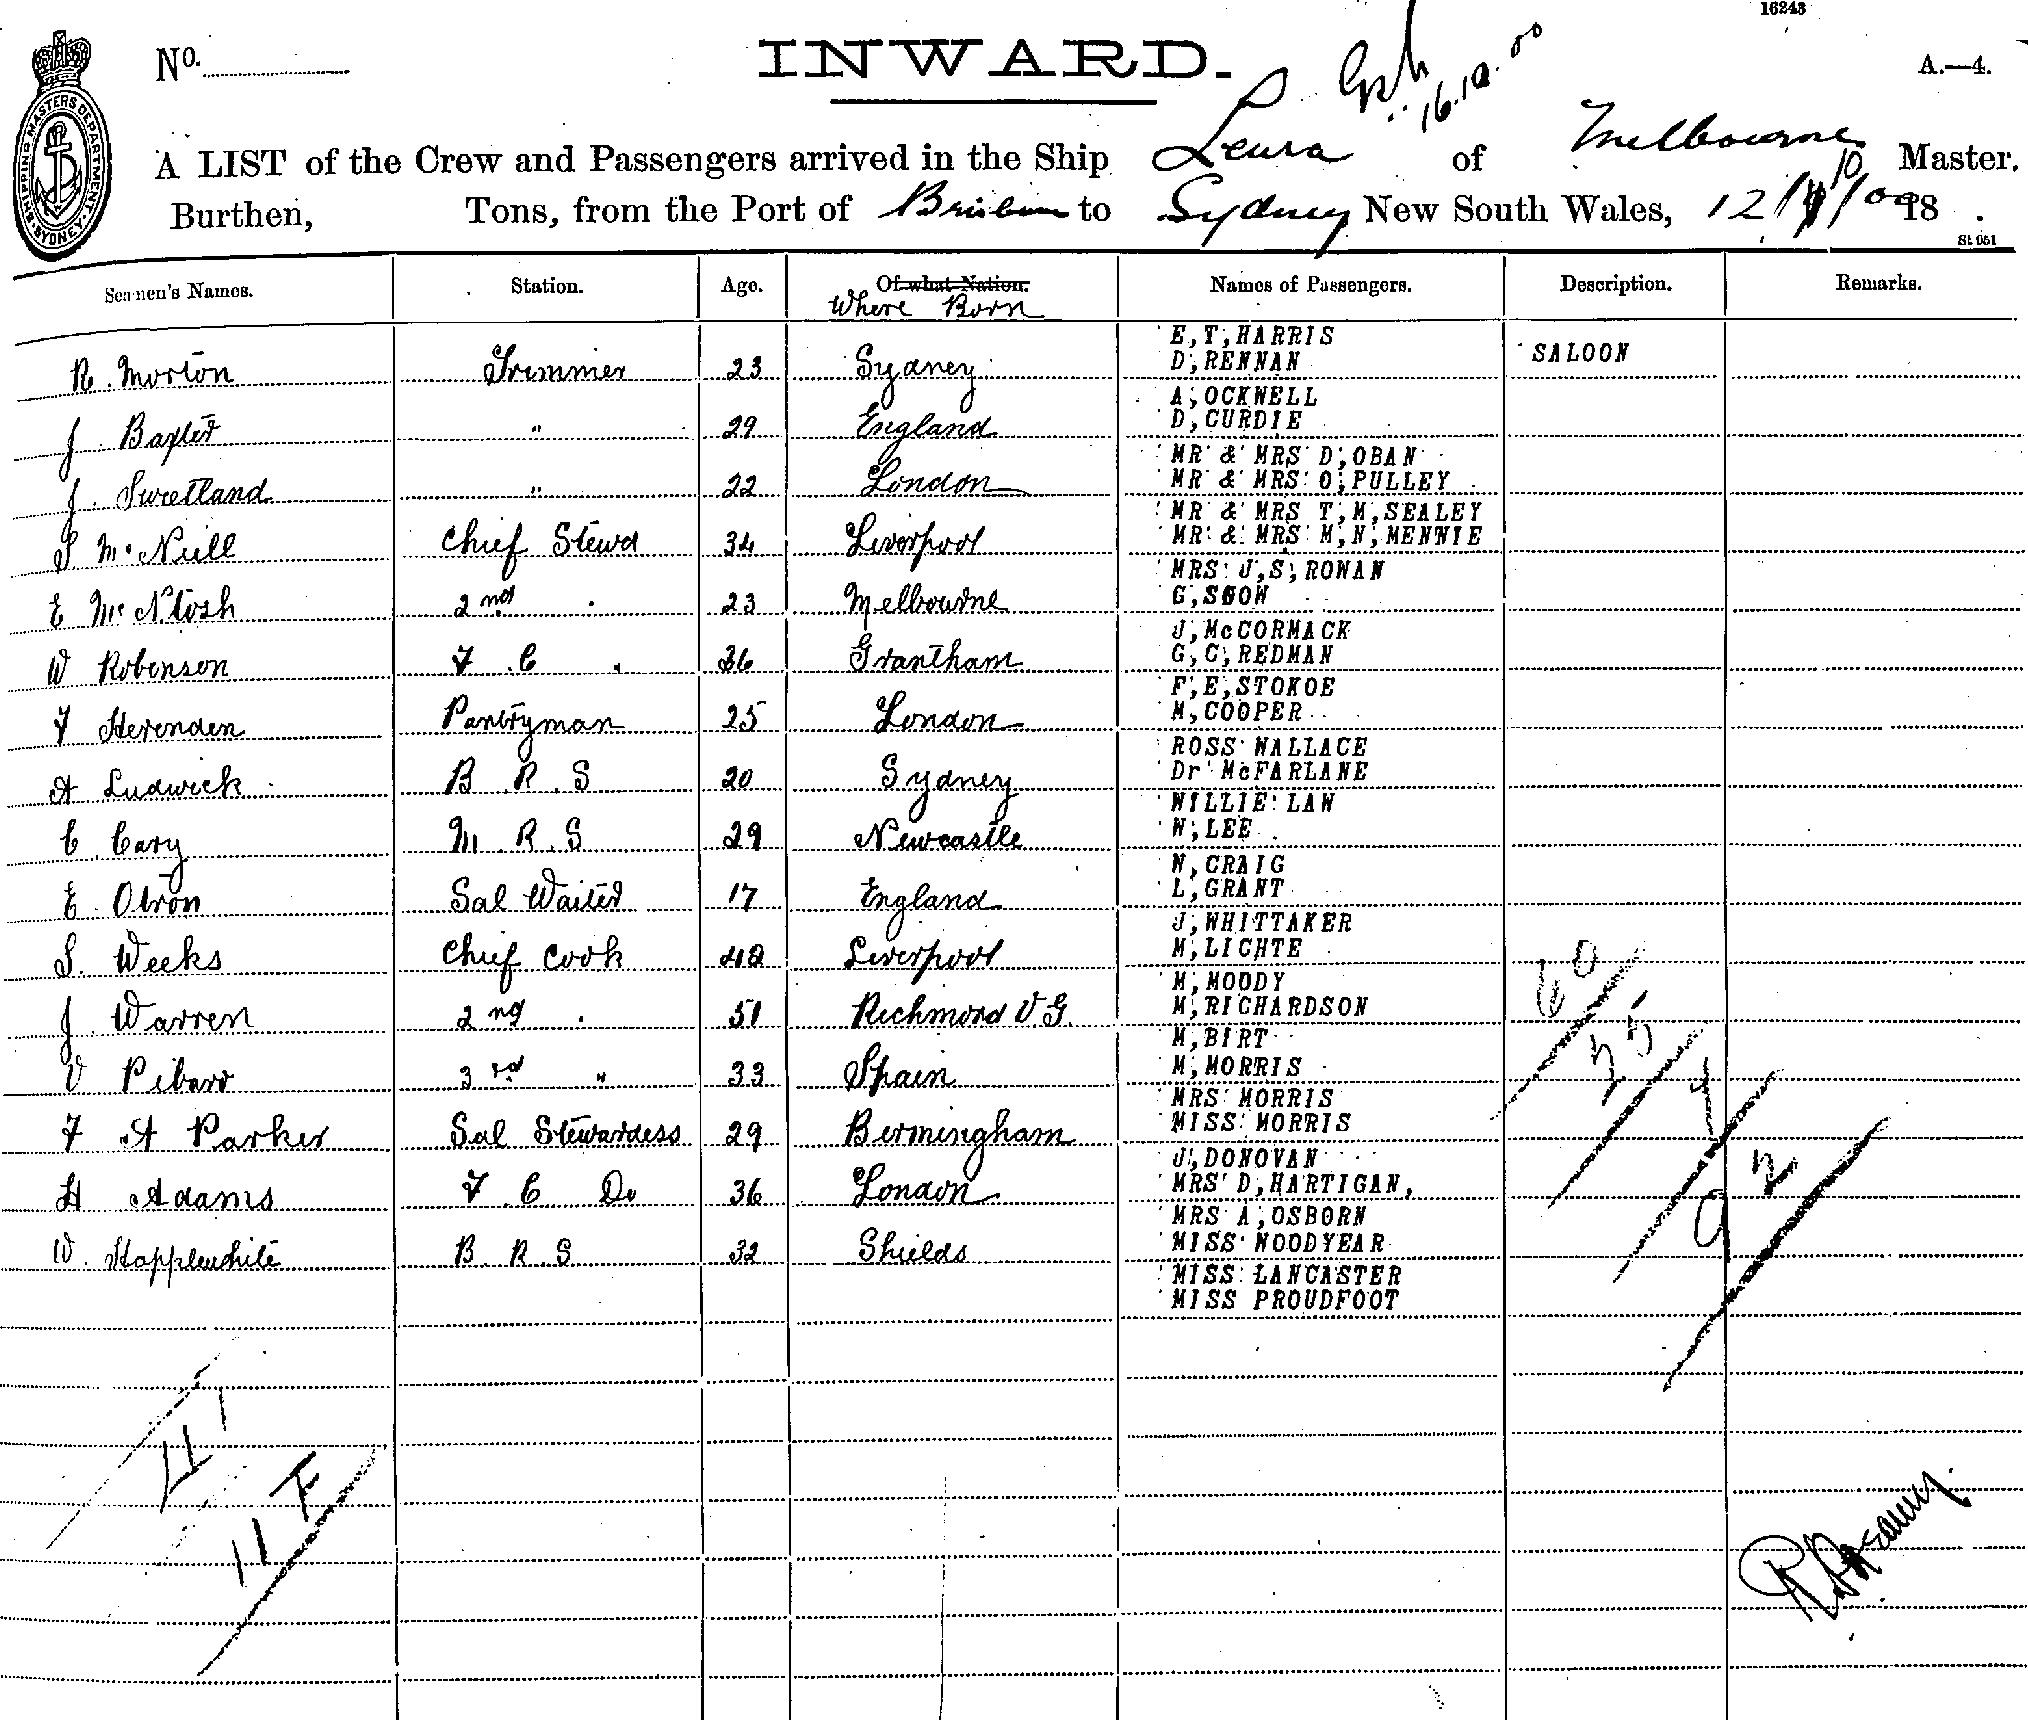 16243
No.
INWARD.
16.10.00
A.—4.
SHIPPING MASTERS DEPARTMENT. SYDNEY.
A LIST of the Crew and Passengers arrived in the Ship Leura of Melbourne Master.
Burthen, Tons, from the Port of Brisbane to Sydney New South Wales, 12/10/00 18 .
St 051
Seamen's Names. Station. Age. Of what Nation. Names of Passengers. Description. Remarks.
Where Born
E,T,HARRIS
R. Morton Trimmer 23 Sydney D,RENNAN SALOON
A,OCKWELL
J. Baxter " 29 England D,CURDIE
MR & MRS D,OBAN
J. Sweetland " 22 London MR & MRS O,PULLEY
MR & MRS T,M,SEALEY
S McNeill Chief Stewd 34 Liverpool MR & MRS M,N,MENNIE
MRS J,S,ROWAN
E McNtosh 2nd " 23 Melbourne G,SNOW
J,McCORMACK
W Robinson F. C " 36 Grantham G,C,REDMAN
F,E,STOKOE
F Herenden Pantryman 25 London M,COOPER
ROSS WALLACE
A Ludwick B. R. S 20 Sydney Dr McFARLANE
WILLIE LAW
C. Cary M. R. S 29 Newcastle W,LEE
N,CRAIG
E. Olron Sal Waiter 17 England L,GRANT
J,WHITTAKER
S. Weeks Chief Cook 42 Liverpool M,LICHTE
M,MOODY
J. Warren 2nd " 51 Richmond V.G. M,RICHARDSON
M,BIRT
V Pibaro 3rd " 33 Spain M,MORRIS
MRS MORRIS
F A Parker Sal Stewardess 29 Birmingham MISS MORRIS
J,DONOVAN
H Adams F C Do 36 London MRS D,HARTIGAN,
MRS A,OSBORN
W. Happlewhite B. R. S 32 Shields MISS WOODYEAR
MISS LANCASTER
MISS PROUDFOOT
60
25
7
92
11 F